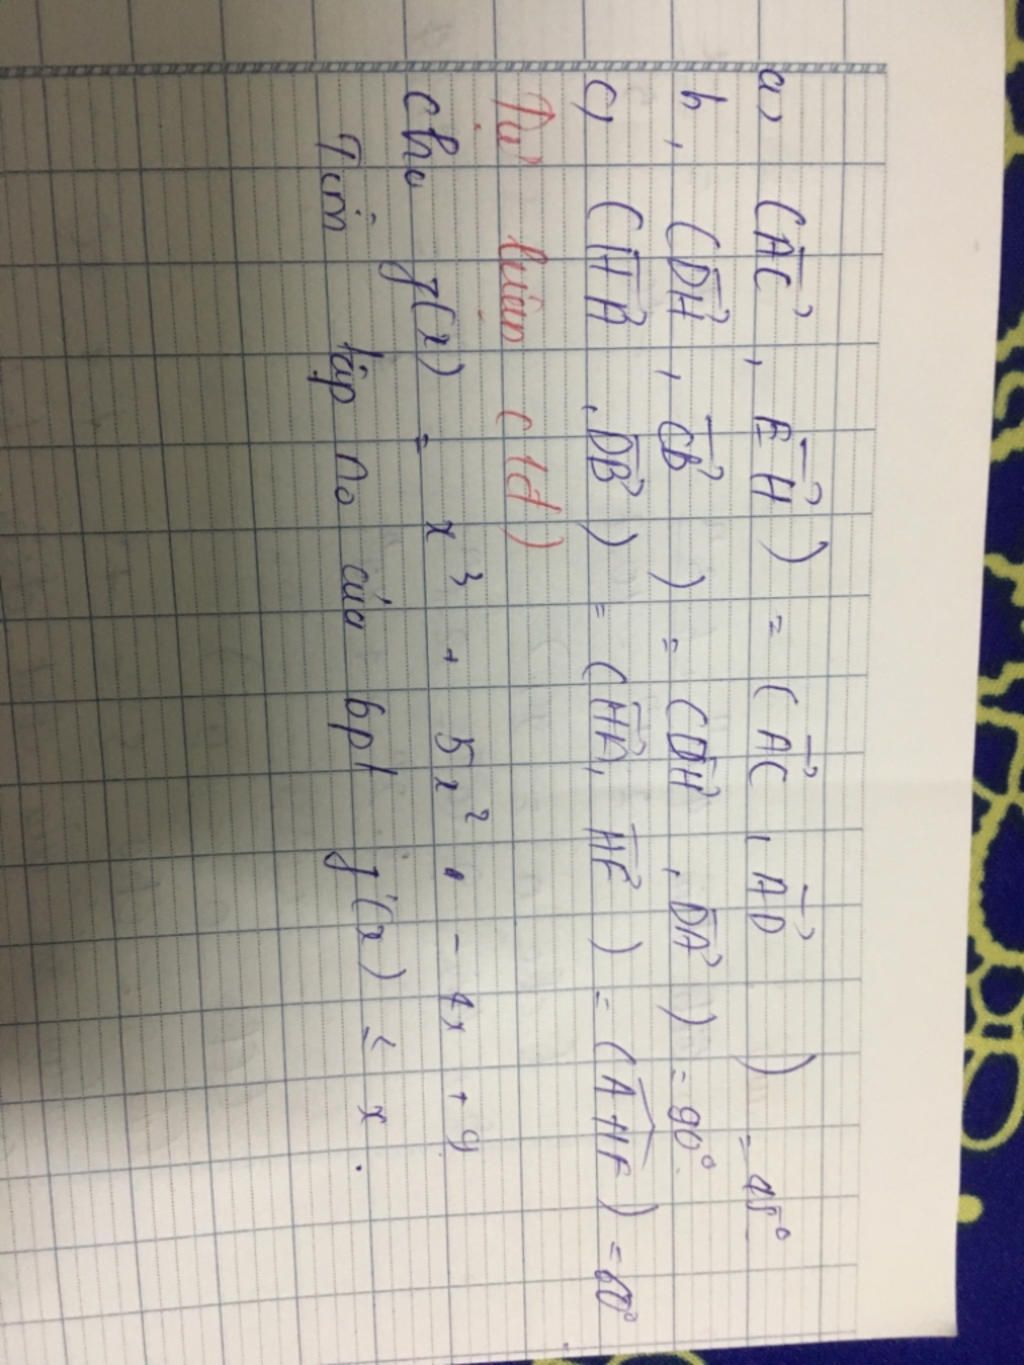 a) (AC⃗, EH⃗) = (AC⃗, AD⃗) = 45°
b, (DH⃗, CB⃗) = (DH⃗, DA⃗) = 90°
c) (HA⃗, DB⃗) = (HA⃗, HF⃗) = (AHF) = 60°
Tự luận (1đ)
Cho g(x) = x³ + 5x² - 4x + 9
Tìm tập no của bpt g'(x) ≤ x.